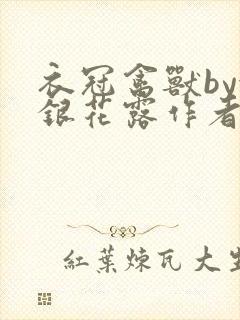 衣冠禽獸by
銀花露作者
紅葉煉瓦大